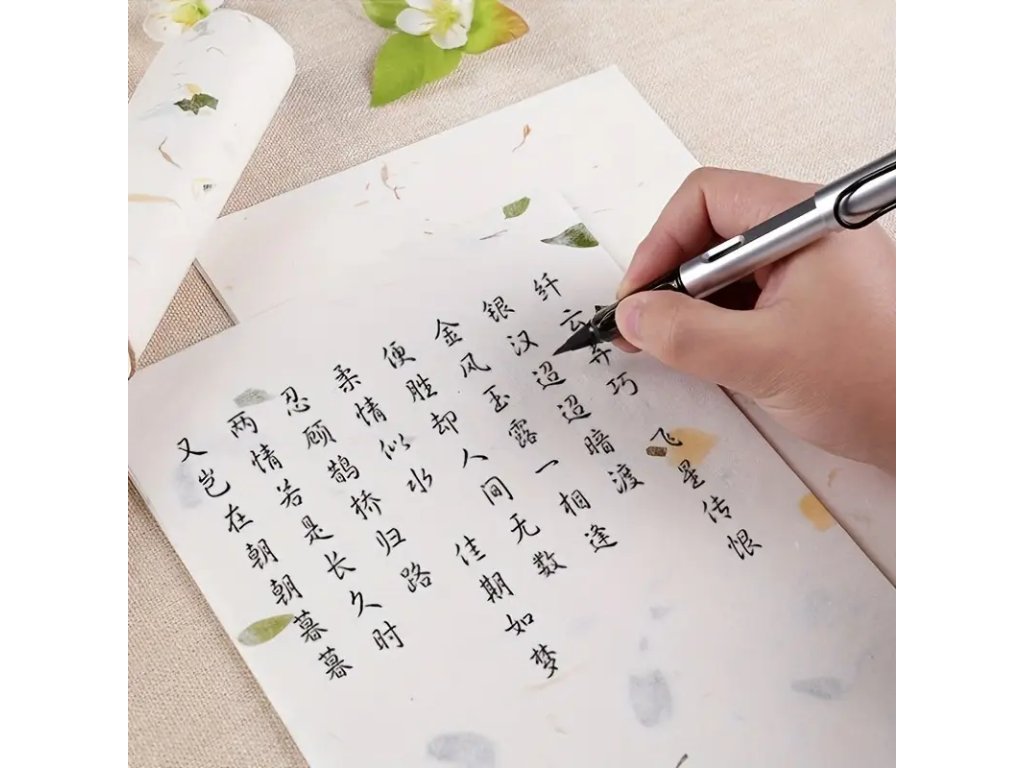 纤云弄巧 飞星传恨
银汉迢迢暗渡
金风玉露一相逢
便胜却人间无数
柔情似水 佳期如梦
忍顾鹊桥归路
两情若是长久时
又岂在朝朝暮暮